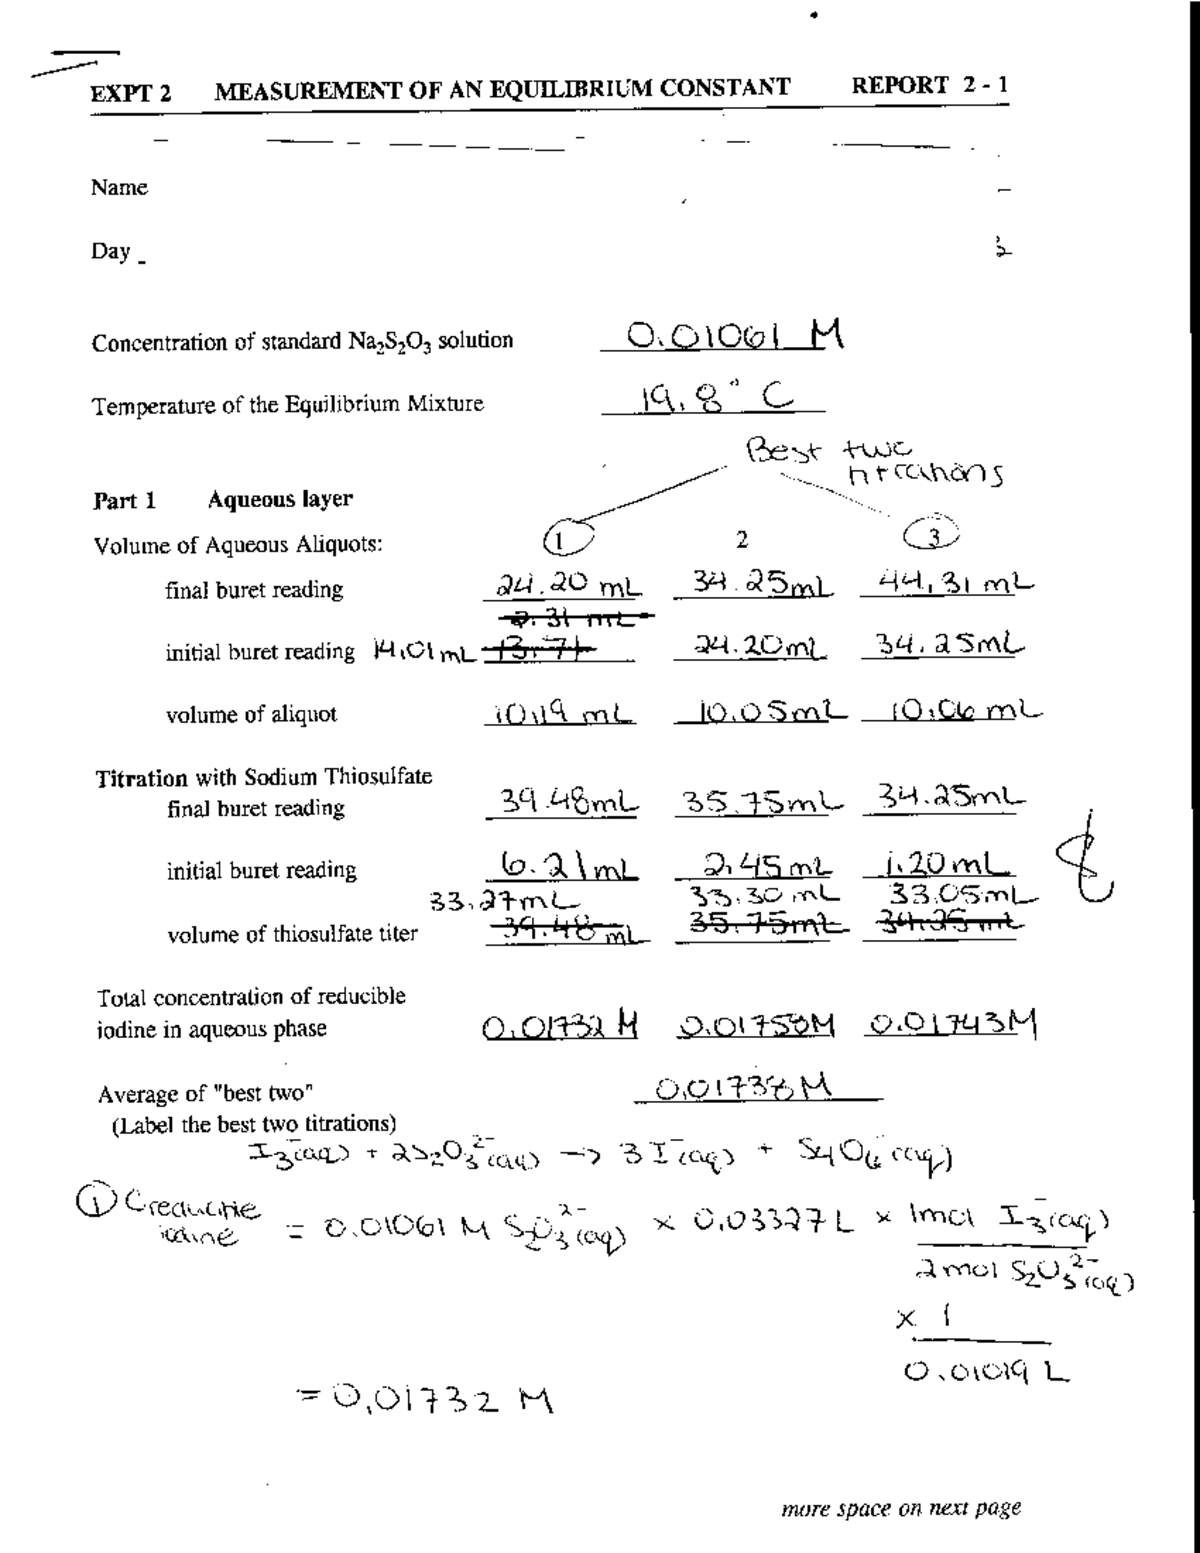 EXPT 2 MEASUREMENT OF AN EQUILIBRIUM CONSTANT REPORT 2 - 1
Name
Day
Concentration of standard Na₂S₂O₃ solution 0.01061 M
Temperature of the Equilibrium Mixture 19.8° C
Best two
titrations
Part 1 Aqueous layer
Volume of Aqueous Aliquots: 1 2 3
final buret reading 24.20 mL 34.25mL 44.31 mL
2.31 mL
initial buret reading 14.01mL 13.71 24.20mL 34.25mL
volume of aliquot 10.19 mL 10.05mL 10.06 mL
Titration with Sodium Thiosulfate
final buret reading 39.48mL 35.75mL 34.25mL
initial buret reading 6.21mL 2.45mL 1.20mL
8
33.27mL 33.30 mL 33.05mL
volume of thiosulfate titer 39.48 mL 35.75mL 34.25mL
Total concentration of reducible
iodine in aqueous phase 0.01732 M 0.01758M 0.01743M
Average of "best two" 0.01738M
(Label the best two titrations)
I₃⁻(aq) + 2S₂O₃²⁻(aq) → 3I⁻(aq) + S₄O₆⁻(aq)
① C reductile
iodine = 0.01061 M S₂O₃²⁻(aq) x 0.03327L x 1mol I₃⁻(aq)
2mol S₂O₃²⁻(aq)
x 1
0.01019 L
= 0.01732 M
more space on next page